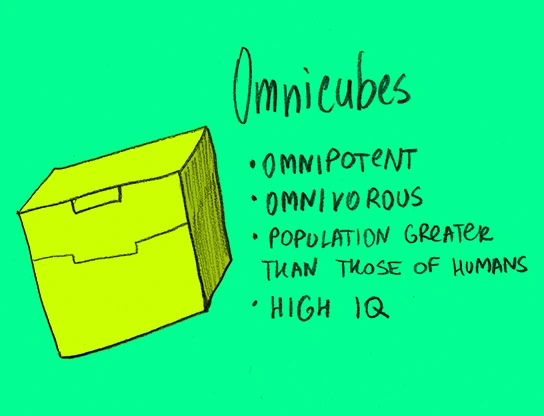 Omnicubes
• OMNIPOTENT
• OMNIVOROUS
• POPULATION GREATER
THAN THOSE OF HUMANS
• HIGH IQ